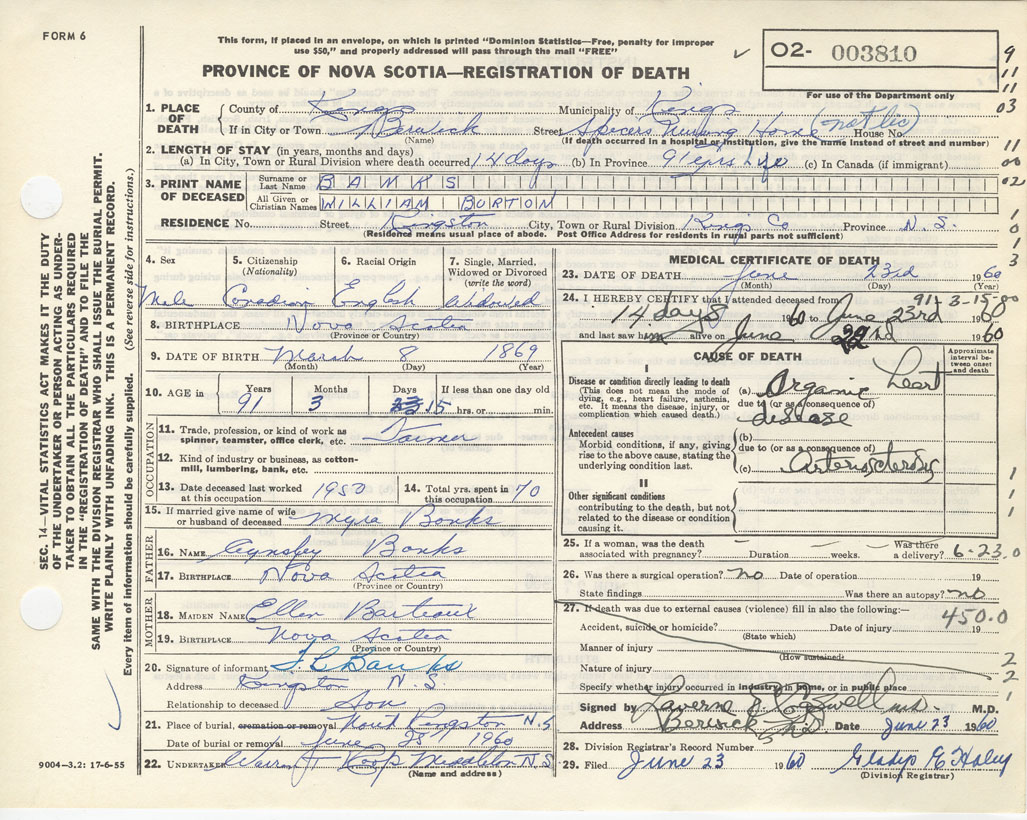 FORM 6
This form, if placed in an envelope, on which is printed "Dominion Statistics—Free, penalty for improper
use $50," and properly addressed will pass through the mail "FREE"
✓
O2- 003810
PROVINCE OF NOVA SCOTIA—REGISTRATION OF DEATH
For use of the Department only
9
11
11
03
11
00
02
1
0
1
3
1. PLACE OF DEATH
County of Kings Municipality of Kings
If in City or Town Berwick Street Spicers Nursing Home (not lic) House No.
(Name) (If death occurred in a hospital or institution, give the name instead of street and number)
2. LENGTH OF STAY (in years, months and days)
(a) In City, Town or Rural Division where death occurred 14 days (b) In Province 91 yrs Life (c) In Canada (if immigrant)
3. PRINT NAME OF DECEASED
Surname or Last Name BANKS
All Given or Christian Names WILLIAM BURTON
RESIDENCE No. Street Kingston City, Town or Rural Division Kings Co Province N.S.
(Residence means usual place of abode. Post Office Address for residents in rural parts not sufficient)
4. Sex Male
5. Citizenship (Nationality) Canadian
6. Racial Origin English
7. Single, Married, Widowed or Divorced (write the word) Widowed
8. BIRTHPLACE Nova Scotia
(Province or Country)
9. DATE OF BIRTH March 8 1869
(Month) (Day) (Year)
10. AGE in Years 91 Months 3 Days 15 If less than one day old hrs. or min.
OCCUPATION
11. Trade, profession, or kind of work as spinner, teamster, office clerk, etc. Farmer
12. Kind of industry or business, as cotton-mill, lumbering, bank, etc.
13. Date deceased last worked at this occupation 1950
14. Total yrs. spent in this occupation 70
15. If married give name of wife or husband of deceased Myra Banks
FATHER
16. NAME Aynsley Banks
17. BIRTHPLACE Nova Scotia
(Province or Country)
MOTHER
18. MAIDEN NAME Ellen Barteaux
19. BIRTHPLACE Nova Scotia
(Province or Country)
20. Signature of informant F C Banks
Address Kingston N.S.
Relationship to deceased Son
21. Place of burial, cremation or removal North Kingston N.S
Date of burial or removal June 1960
22. UNDERTAKER Warren T Roop Middleton N.S
(Name and address)
MEDICAL CERTIFICATE OF DEATH
23. DATE OF DEATH June 23rd 1960
(Month) (Day) (Year)
91-3-15-00
24. I HEREBY CERTIFY that I attended deceased from
14 days 1960 to June 23rd 1960
and last saw him alive on June 22nd 1960
CAUSE OF DEATH
Approximate interval between onset and death
I
Disease or condition directly leading to death
(This does not mean the mode of dying, e.g., heart failure, asthenia, etc. It means the disease, injury, or complication which caused death.)
(a) Organic heart
due to (or as a consequence of)
disease
Antecedent causes
Morbid conditions, if any, giving rise to the above cause, stating the underlying condition last.
(b)
due to (or as a consequence of)
(c) Arteriosclerosis
II
Other significant conditions contributing to the death, but not related to the disease or condition causing it.
1
1
1
1
25. If a woman, was the death associated with pregnancy? Duration weeks. Was there a delivery?
6-23.0
26. Was there a surgical operation? no Date of operation 19
State findings Was there an autopsy? no
27. If death was due to external causes (violence) fill in also the following:—
450.0
Accident, suicide or homicide? Date of injury 19
(State which)
Manner of injury
(How sustained)
2
Nature of injury
2
Specify whether injury occurred in industry, in home, or in public place
1
Signed by Laverne E Cogswell M.D.
Address Berwick NS Date June 23 1960
28. Division Registrar's Record Number
29. Filed June 23 1960 Gladys E Haley
(Division Registrar)
SEC. 14—VITAL STATISTICS ACT MAKES IT THE DUTY
OF THE UNDERTAKER OR PERSON ACTING AS UNDER-
TAKER TO OBTAIN ALL THE PARTICULARS REQUIRED
IN THE "REGISTRATION OF DEATH" AND TO FILE THE
SAME WITH THE DIVISION REGISTRAR WHO SHALL ISSUE THE BURIAL PERMIT.
WRITE PLAINLY WITH UNFADING INK. THIS IS A PERMANENT RECORD.
Every item of information should be carefully supplied. (See reverse side for instructions.)
9004—3.2: 17-6-55